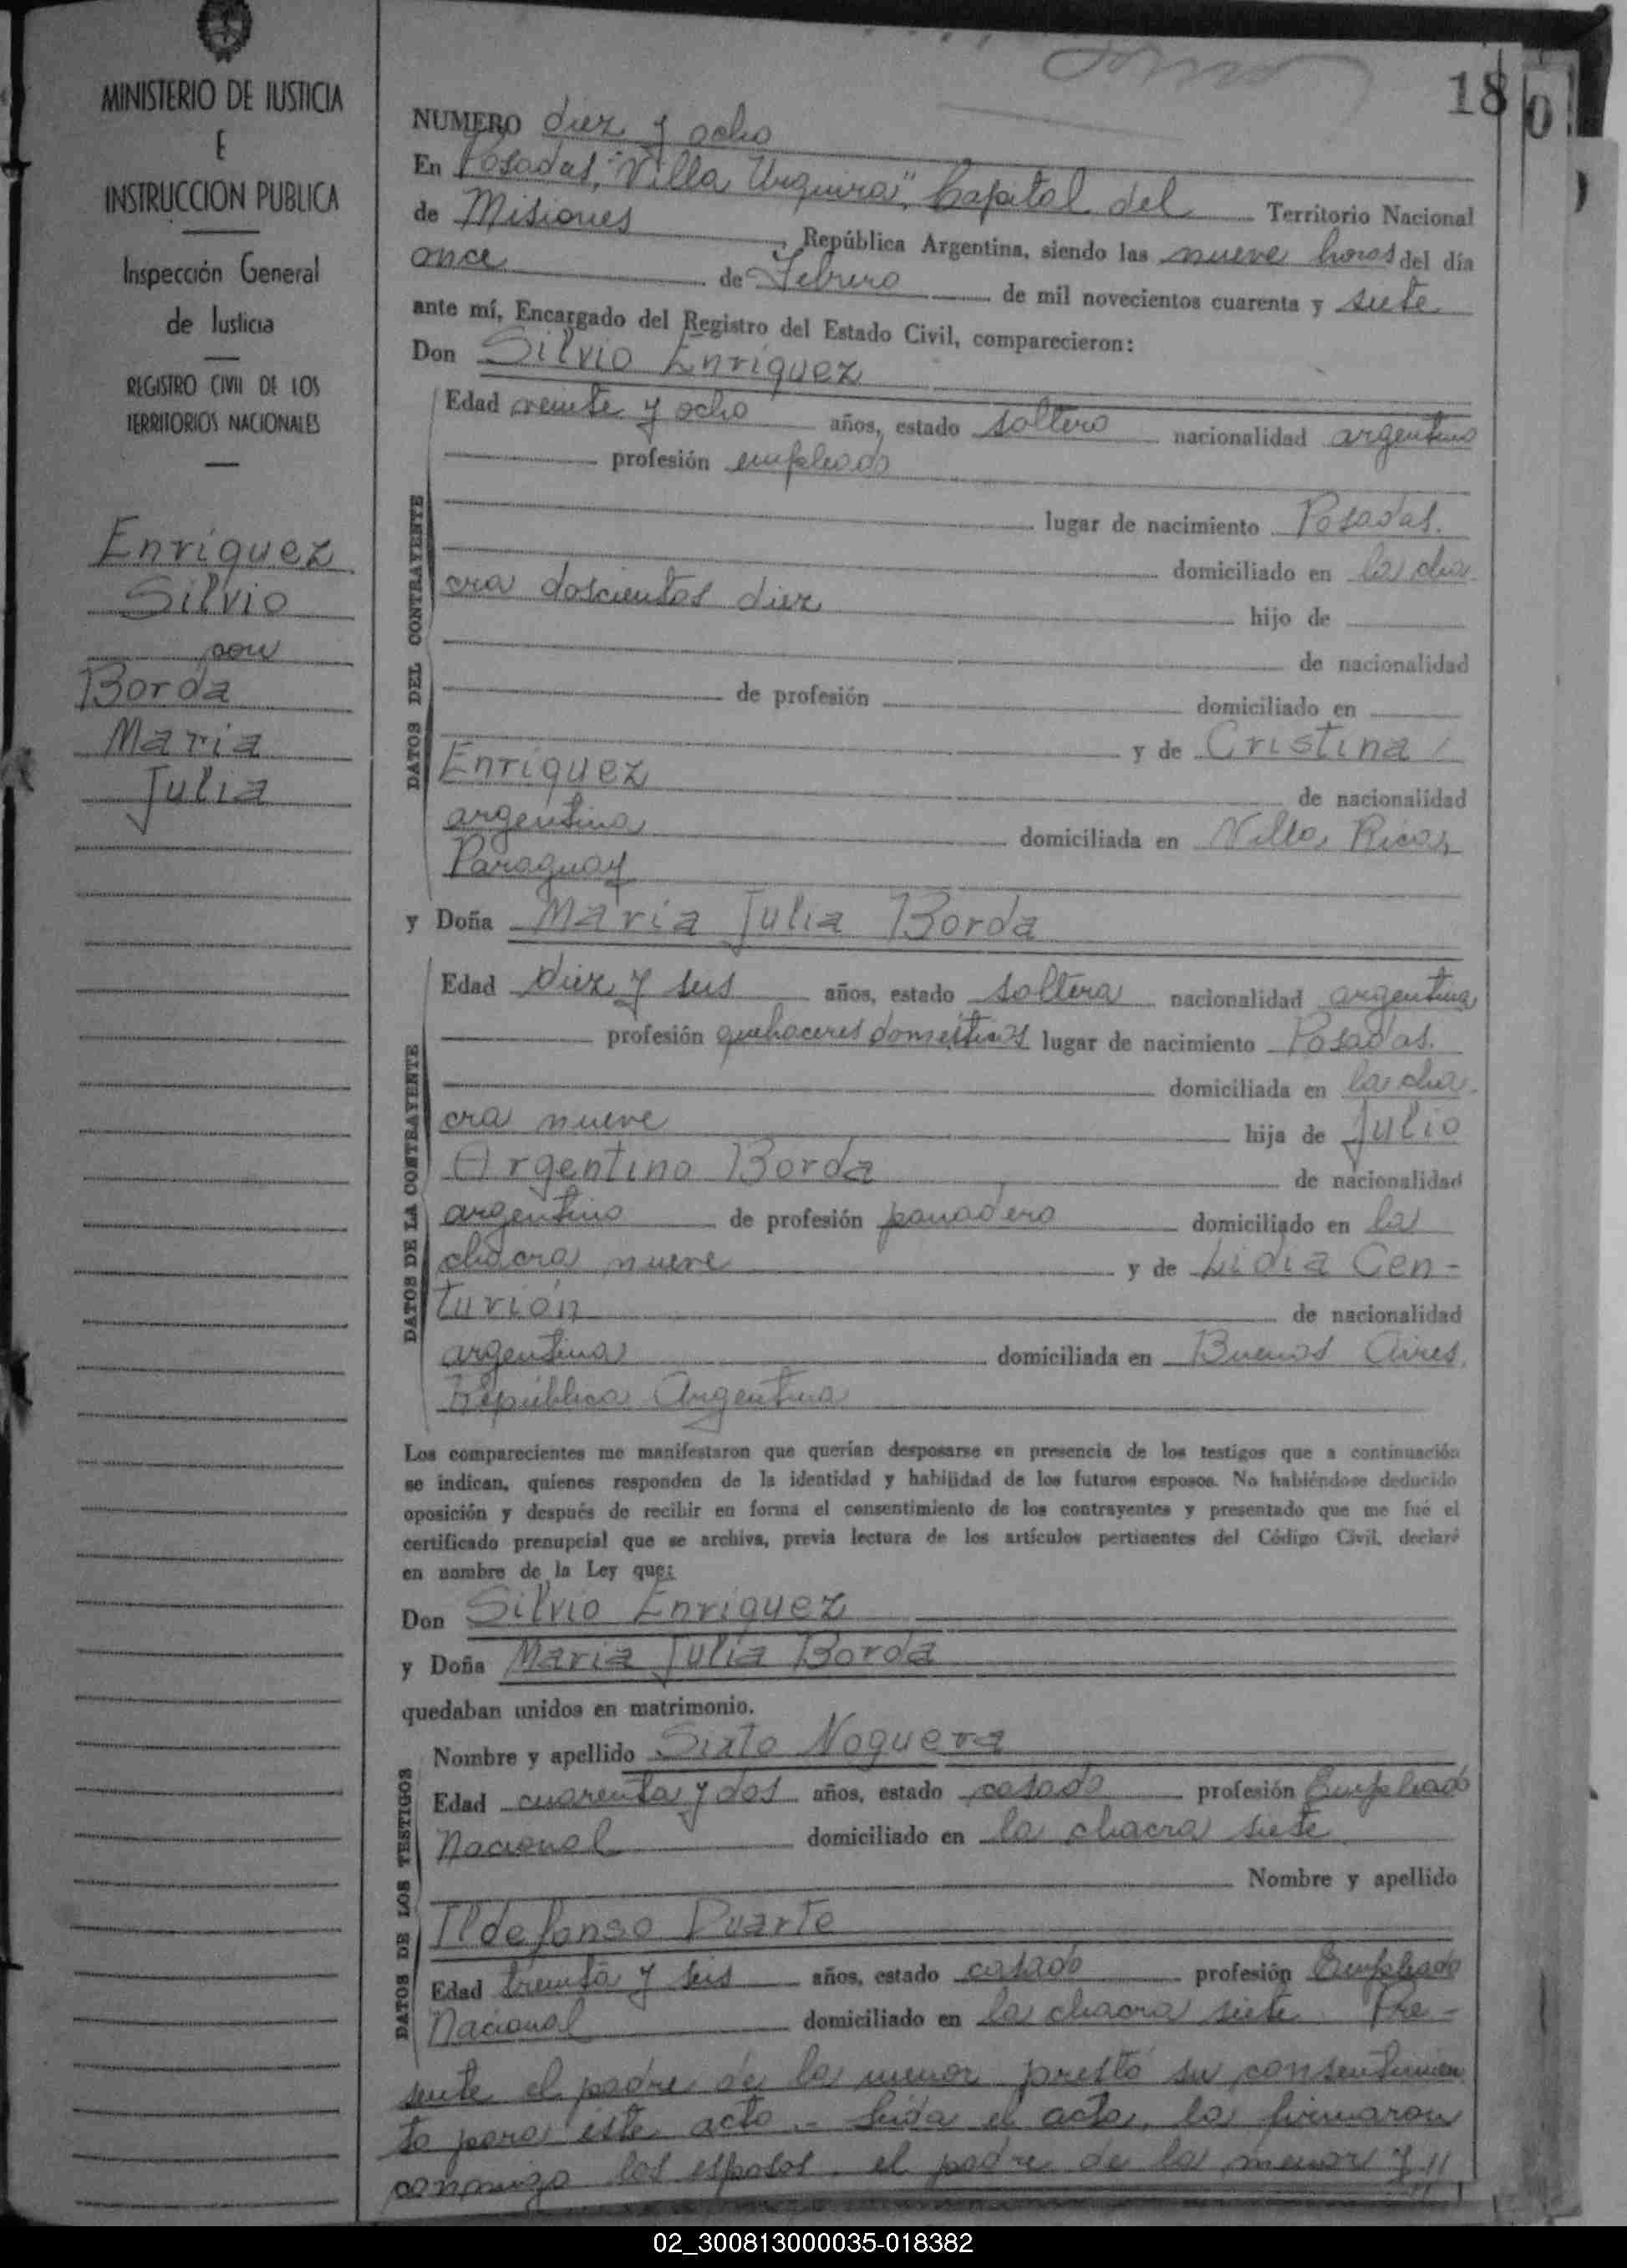 MINISTERIO DE JUSTICIA
E
INSTRUCCION PUBLICA
Inspección General
de Justicia
REGISTRO CIVIL DE LOS
TERRITORIOS NACIONALES
Enríquez
Silvio
con
Borda
Maria
Julia
18
NUMERO diez y ocho
En Posadas, "Villa Urquiza", Capital del Territorio Nacional
de Misiones, República Argentina, siendo las nueve horas del día
once de Febrero de mil novecientos cuarenta y siete
ante mí, Encargado del Registro del Estado Civil, comparecieron:
Don Silvio Enríquez
DATOS DEL CONTRAYENTE
Edad veinte y ocho años, estado soltero nacionalidad argentino
profesión empleado
lugar de nacimiento Posadas.
domiciliado en la cha-
cra doscientos diez hijo de
de nacionalidad
de profesión domiciliado en
y de Cristina
Enríquez de nacionalidad
argentina domiciliada en Villa Rica,
Paraguay
y Doña Maria Julia Borda
DATOS DE LA CONTRAYENTE
Edad diez y seis años, estado soltera nacionalidad argentina
profesión quehaceres domésticos lugar de nacimiento Posadas.
domiciliada en la cha-
cra nueve hija de Julio
Argentino Borda de nacionalidad
argentino de profesión panadero domiciliado en la
chacra nueve y de Lidia Cen-
turión de nacionalidad
argentina domiciliada en Buenos Aires,
República Argentina
Los comparecientes me manifestaron que querían desposarse en presencia de los testigos que a continuación
se indican, quienes responden de la identidad y habilidad de los futuros esposos. No habiéndose deducido
oposición y después de recibir en forma el consentimiento de los contrayentes y presentado que me fué el
certificado prenupcial que se archiva, previa lectura de los artículos pertinentes del Código Civil, declaré
en nombre de la Ley que:
Don Silvio Enríquez
y Doña Maria Julia Borda
quedaban unidos en matrimonio.
DATOS DE LOS TESTIGOS
Nombre y apellido Sixto Noguera
Edad cuarenta y dos años, estado casado profesión Empleado
Nacional domiciliado en la chacra siete
Nombre y apellido
Ildefonso Duarte
Edad treinta y seis años, estado casado profesión Empleado
Nacional domiciliado en la chacra siete. Pre-
sente el padre de la menor prestó su consentimien
to para éste acto.- Leída el acta, la firmaron
conmigo los esposos, el padre de la menor y //
02_300813000035-018382